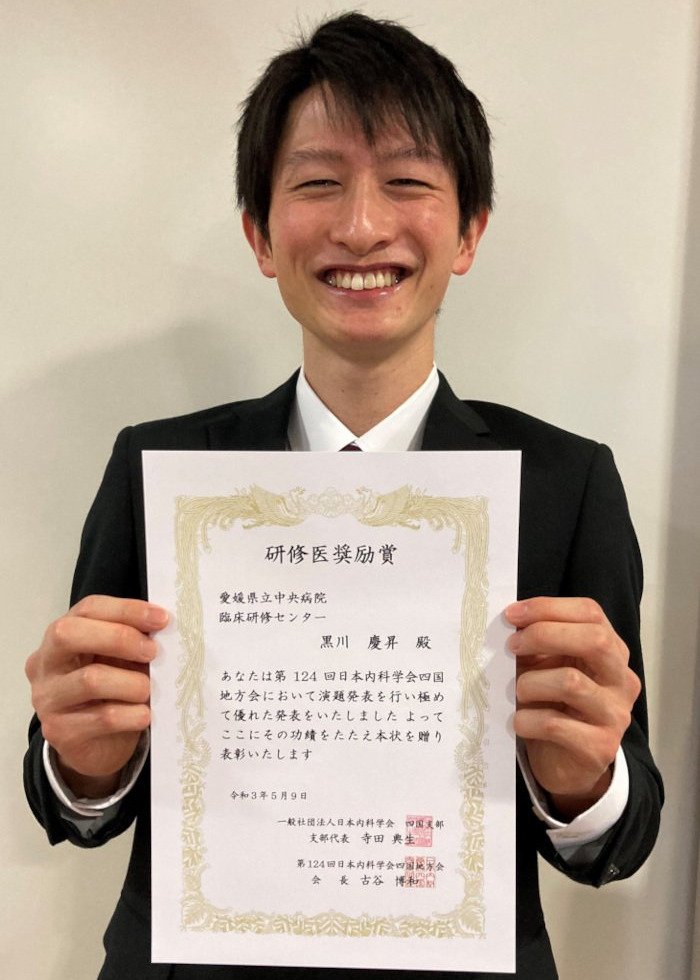 研修医奨励賞
愛媛県立中央病院
臨床研修センター
黒川 慶昇 殿
あなたは第 124 回日本内科学会四国
地方会において演題発表を行い極め
て優れた発表をいたしました よって
ここにその功績をたたえ本状を贈り
表彰いたします
令和3年5月9日
一般社団法人日本内科学会 四国支部
支部代表 寺田 典生
第124回日本内科学会四国地方会
会 長 古谷 博和